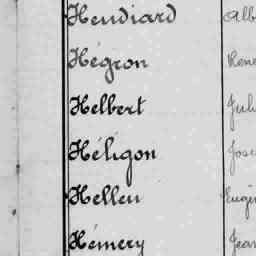 Heudiard Alb
Hégron René
Helbert Juli
Héligon Jose
Helleu Eugèn
Hémery Jean